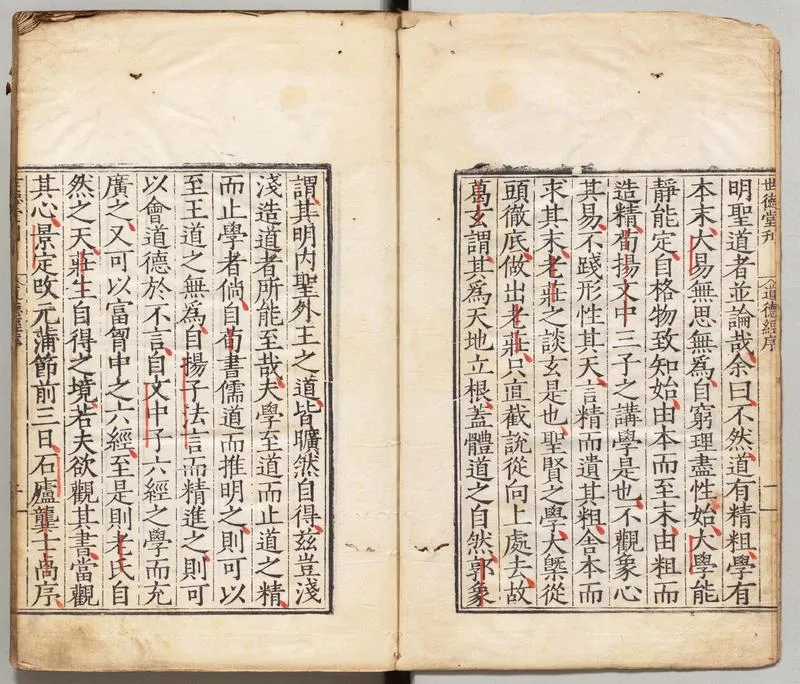 世德堂刊
道德經序
明聖道者並論哉余曰不然道有精粗學有
本末大易無思無爲自窮理盡性始大學能
靜能定自格物致知始由本而至末由粗而
造精荀揚文中三子之講學是也不觀象心
其易不踐形性其天言精而遺其粗舍本而
求其末老莊之談玄是也聖賢之學大槩從
頭徹底做出老莊只直截說從向上處去故
葛玄謂其爲天地立根蓋體道之自然郭象
謂其明內聖外王之道皆曠然自得茲豈淺
淺造道者所能至哉夫學至道而止道之精
而止學者倘自荀書儒道而推明之則可以
至王道之無爲自揚子法言而精進之則可
以會道德於不言自文中子六經之學而充
廣之又可以富智中之六經至是則老氏自
然之天莊生自得之境若夫欲觀其書當觀
其心景定改元蒲節前三日石廬龔士禼序